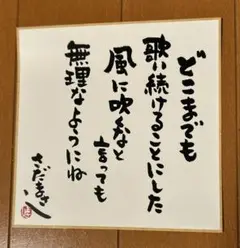 どこまでも
歌い続けることにした
風に吹くなと
言っても
無理なようにね
さだまさし